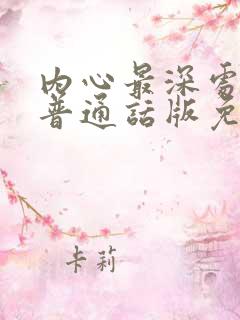 内心最深
普通話版免
卡莉